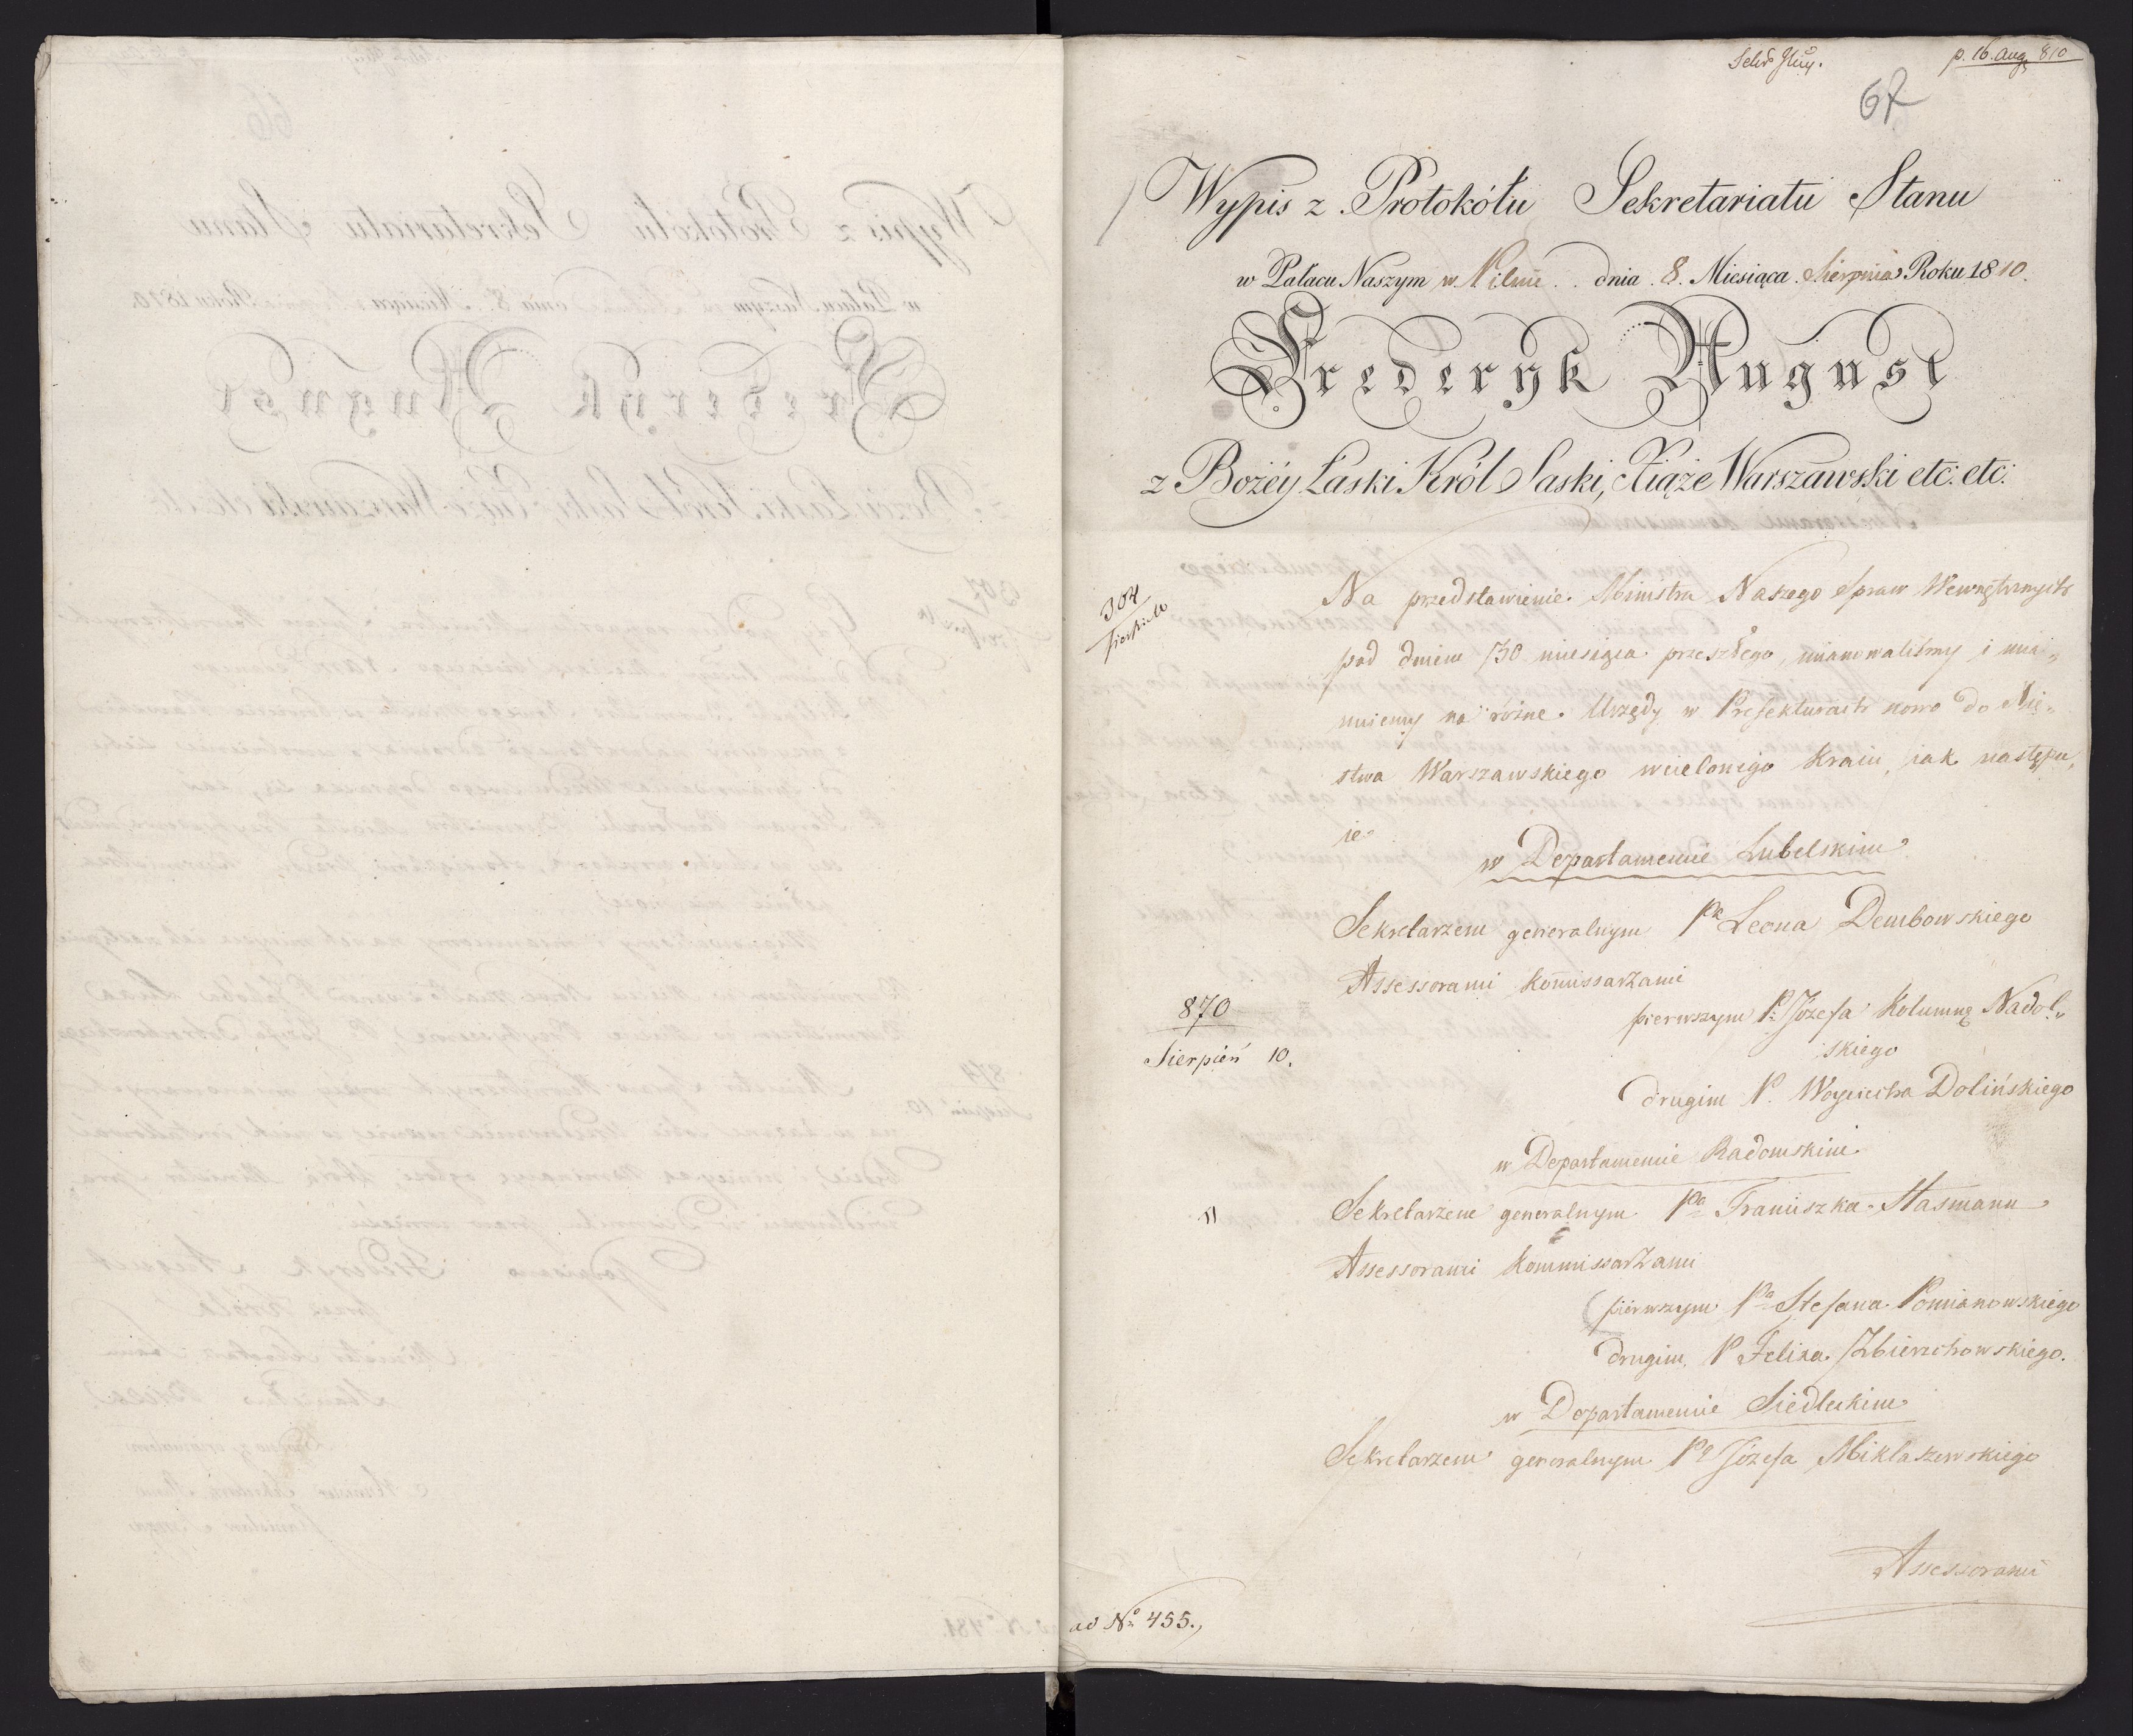 p. 16. Aug. 810
67
Wypis z Protokółu Sekretariatu Stanu
w Pałacu Naszym w Pilnitz dnia 8. Miesiąca Sierpnia Roku 1810.
Frederyk August
z Bożéy Łaski Król Saski, Xiąże Warszawski etc: etc:
304
Na przedstawienie Ministra Naszego Spraw Wewnętrznych
pod dniem 30 miesiąca przeszłego, mianowaliśmy i mia„
nuiemy na różne Urzędy w Prefekturach nowo do Xię„
stwa Warszawskiego wcielonego Kraiu, iak następu„
ie
w Departamencie Lubelskim
Sekretarzem generalnym Pa Leona Dembowskiego
Assessorami Kommissarzami
pierwszym P. Józefa Kolumnę Nadol„
870
skiego
Sierpień 10.
drugim P. Woyciecha Dolińskiego
w Departamencie Radomskim
Sekretarzem generalnym Pa Franciszka Stasmann
Assessorami Kommissarzami
pierwszym Pa Stefana Pomianowskiego
drugim P Felixa Zbierzchowskiego.
w Departamencie Siedleckim
Sekretarzem generalnym Pa Józefa Miklaszewskiego
Assessorami
ad No 455.